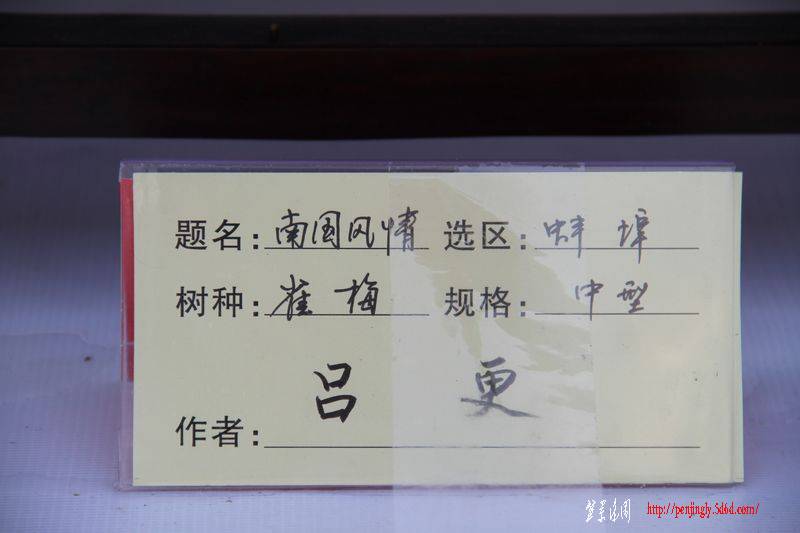 题名：南国风情 选区：蚌埠
树种：雀梅 规格：中型
作者：吕更
盆景乐园 http://penjingly.5d6d.com/